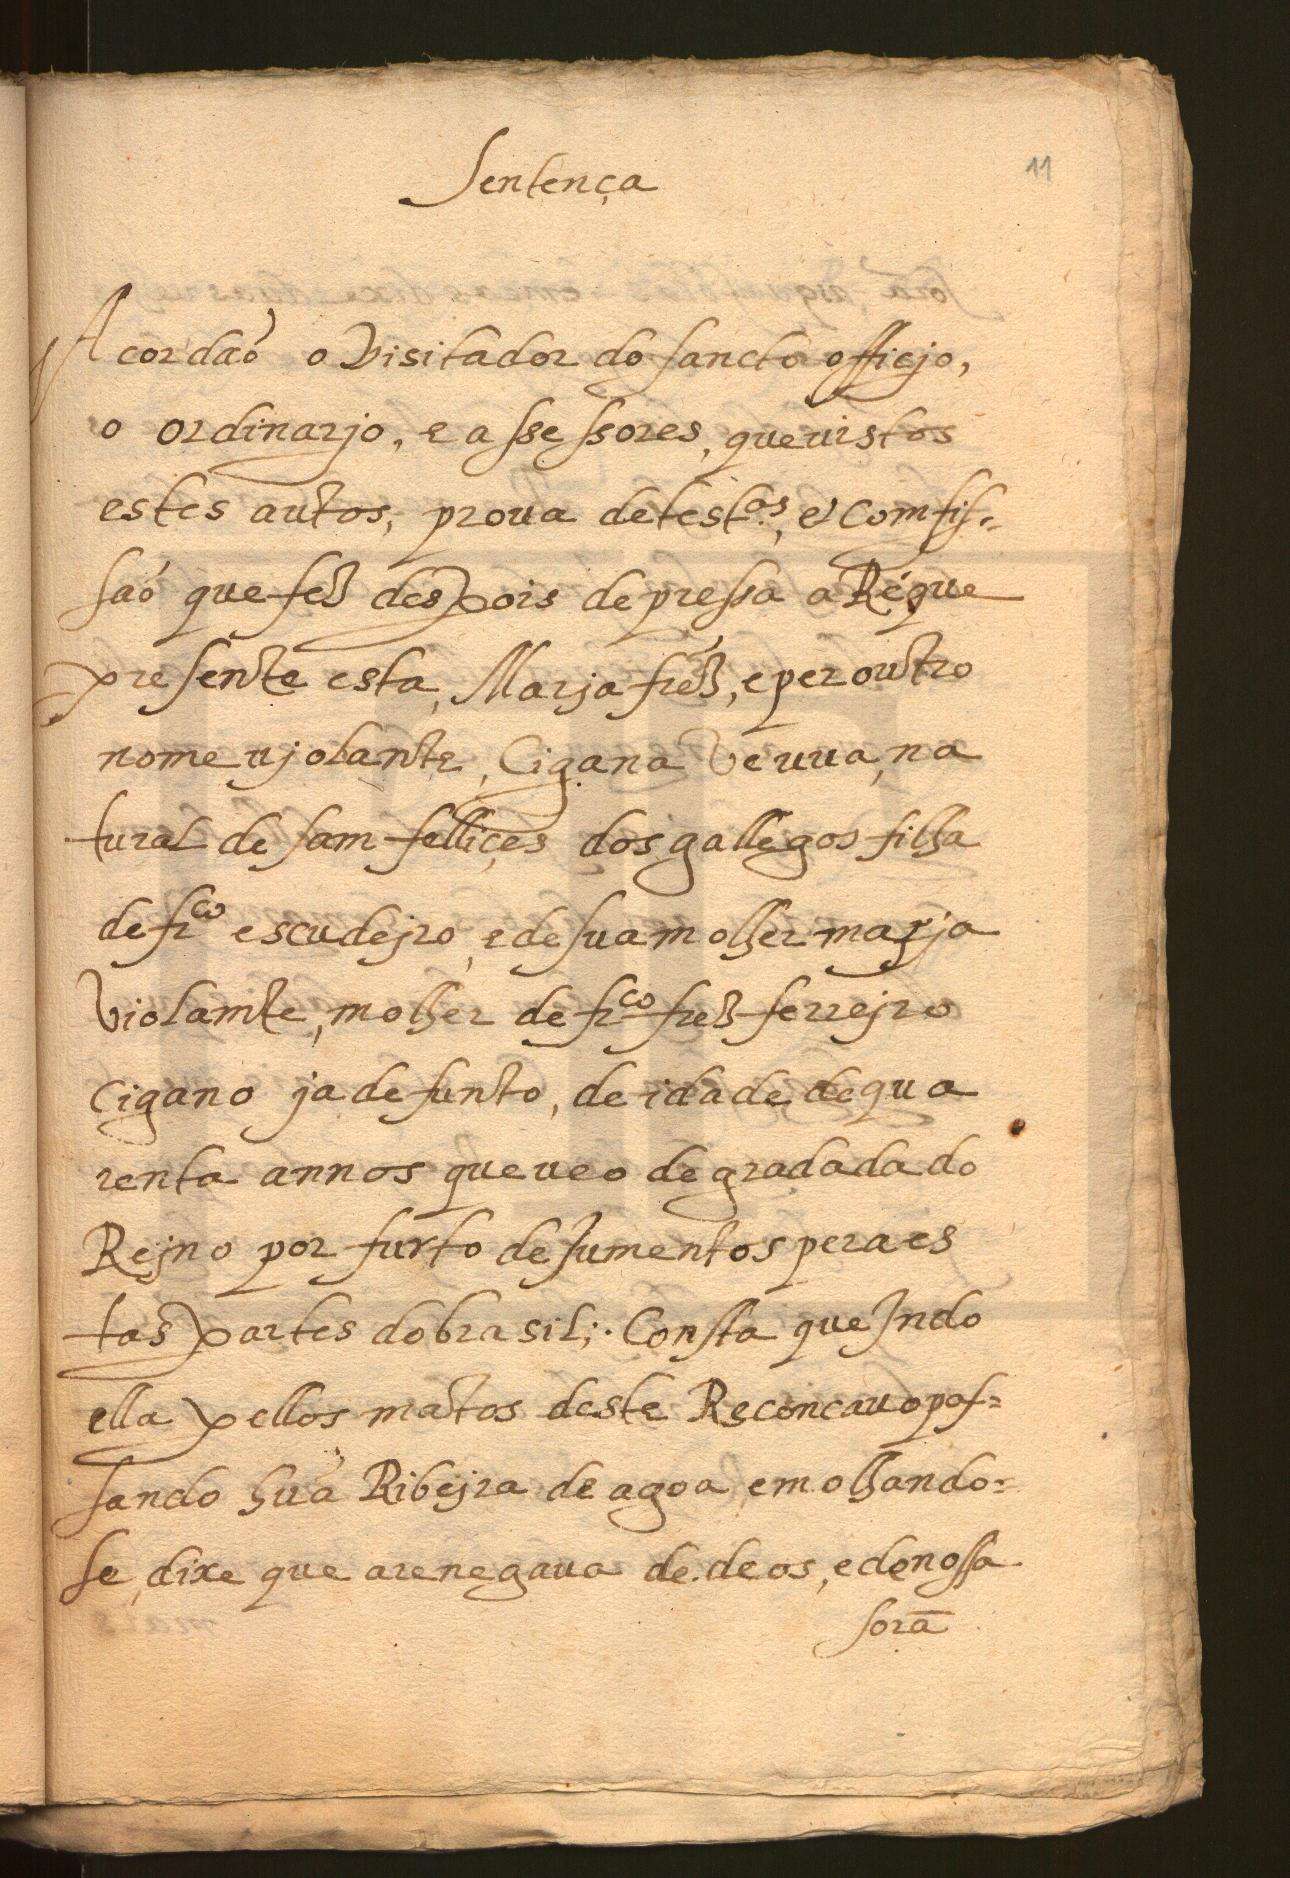 Sentença
11
Acordaõ o Visitador do sancto officjo,
o ordinarjo, e assessores, que vistos
estes autos, prova de test.as, e comfis=
saõ que fez despois de pressa a Ré que
presente esta, Marja frēz, e per outro
nome vjolante, Cigana veuva, na
tural de sam fellices dos gallegos filha
de fr.co escudejro, e de sua molher marja
Violamte, molher de fr.co frēz ferrejro
cigano ja defunto, de idade de qua
renta annos que veo degradada do
Rejno por furto de Jumentos pera es
tas partes do brasil; Consta que Jndo
ella pellos matos deste Reconcavo pas=
sando hũa Ribejra de agoa, e molhando=
se, dixe que arenegava de deos, e de nossa
sorā